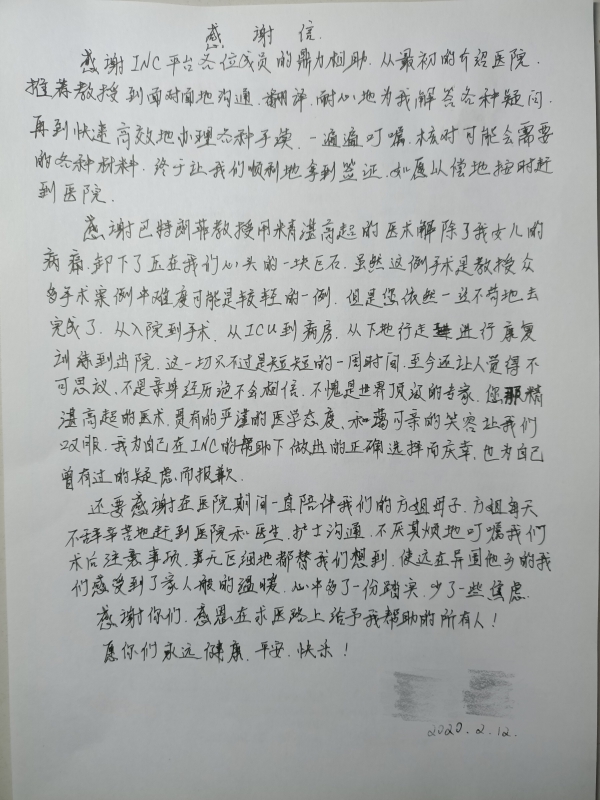 感谢信.
感谢INC平台各位成员的鼎力相助.从最初的介绍医院.
推荐教授到面对面地沟通.翻译.耐心地为我解答各种疑问.
再到快速高效地办理各种手续.一遍遍叮嘱.核对可能会需要
的各种材料.终于让我们顺利地拿到签证.如愿以偿地按时赶
到医院.
感谢巴特朗菲教授用精湛高超的医术解除了我女儿的
病痛.卸下了压在我们心头的一块巨石.虽然这例手术是教授众
多手术案例中难度可能是较轻的一例.但是您依然一丝不苟地去
完成了.从入院到手术.从ICU到病房.从下地行走进行康复
训练到出院.这一切只不过是短短的一周时间.至今还让人觉得不
可思议.不是亲身经历说不会相信.不愧是世界顶级的专家.您那精
湛高超的医术.具有的严谨的医学态度.和蔼可亲的笑容让我们
叹服.我为自己在INC的帮助下做出的正确选择而庆幸.也为自己
曾有过的疑虑而报歉.
还要感谢在医院期间一直陪伴我们的方姐母子.方姐每天
不辞辛苦地赶到医院和医生.护士沟通.不厌其烦地叮嘱我们
术后注意事项.事无巨细地都替我们想到.使远在异国他乡的我
们感受到了家人般的温暖.心中多了一份踏实.少了一些焦虑.
感谢你们.感恩在求医路上给予我帮助的所有人!
愿你们永远健康.平安.快乐!
2020.2.12.